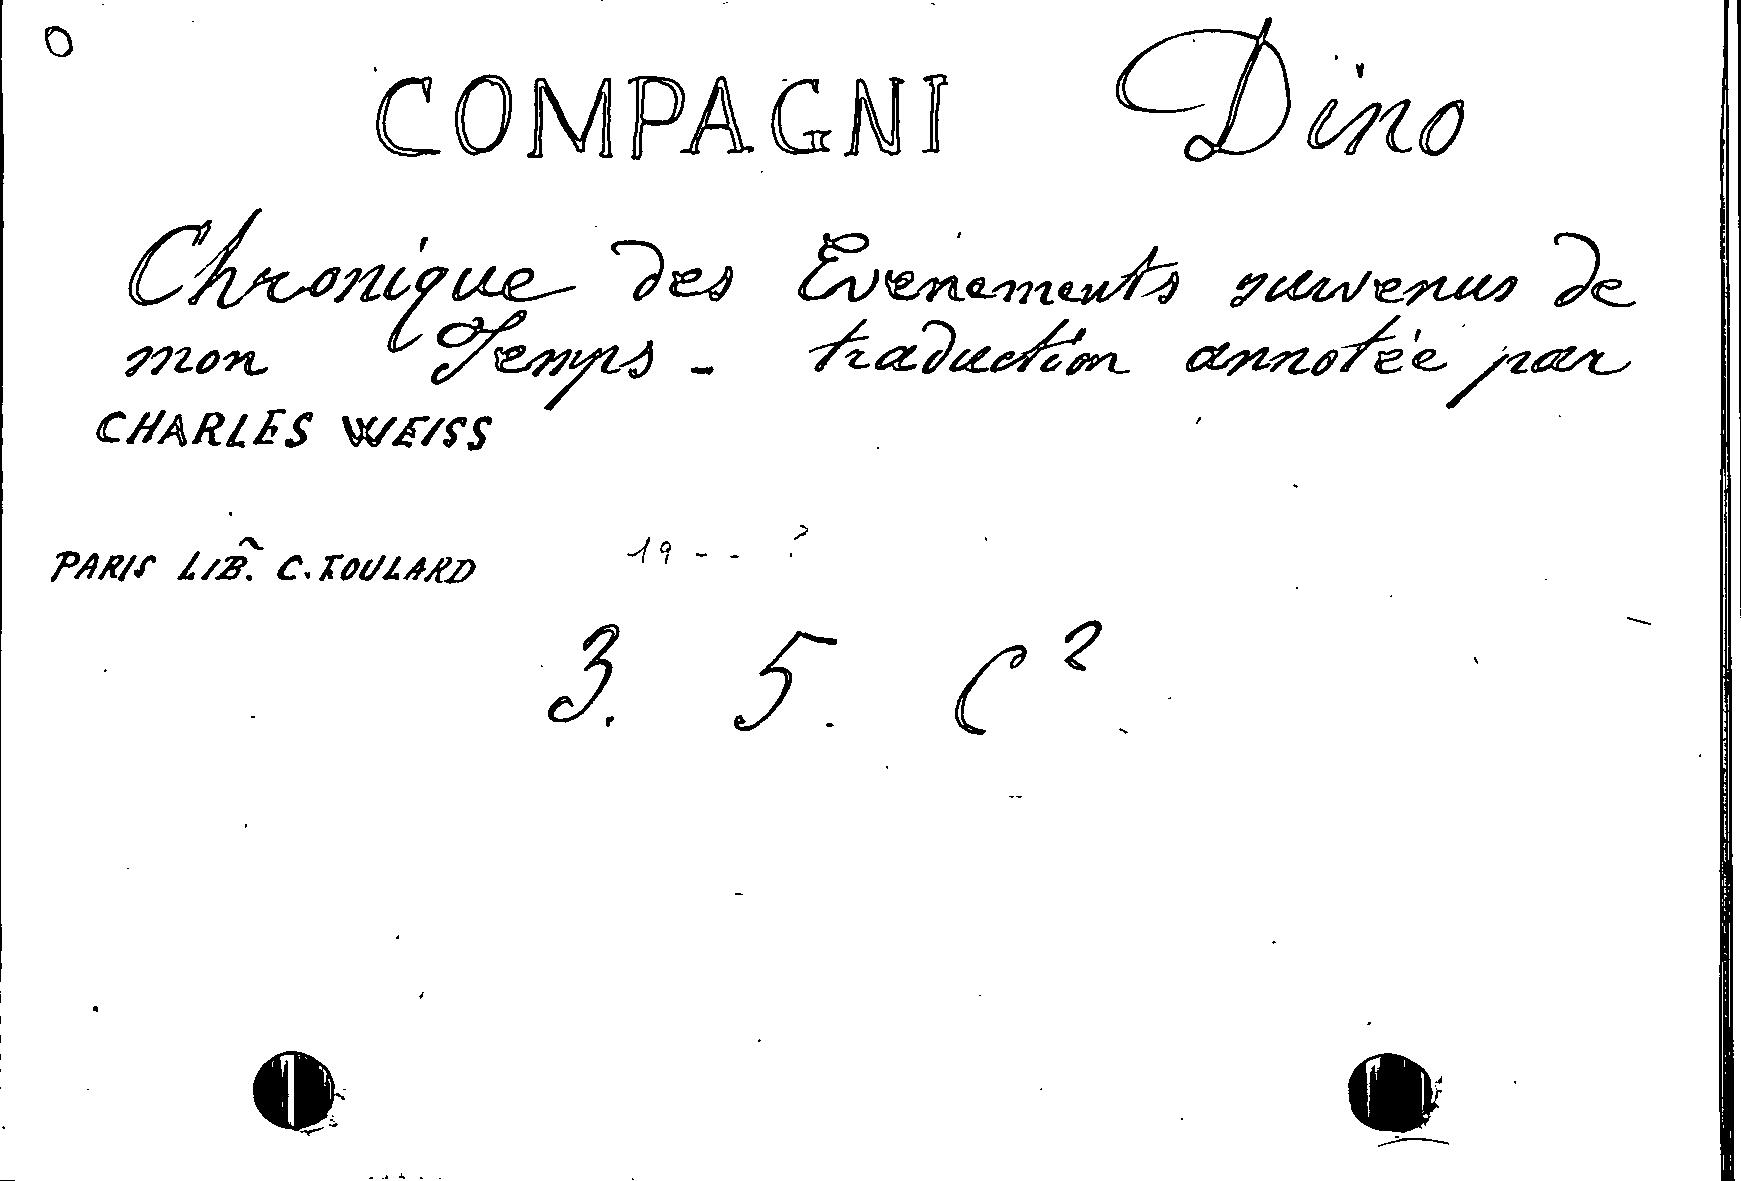 O
COMPAGNI Dino
Chronique des Evenements survenus de
mon Temps - traduction annotée par
CHARLES WEISS
PARIS LIB. C. TOULARD 19 - - ?
3. 5. C²